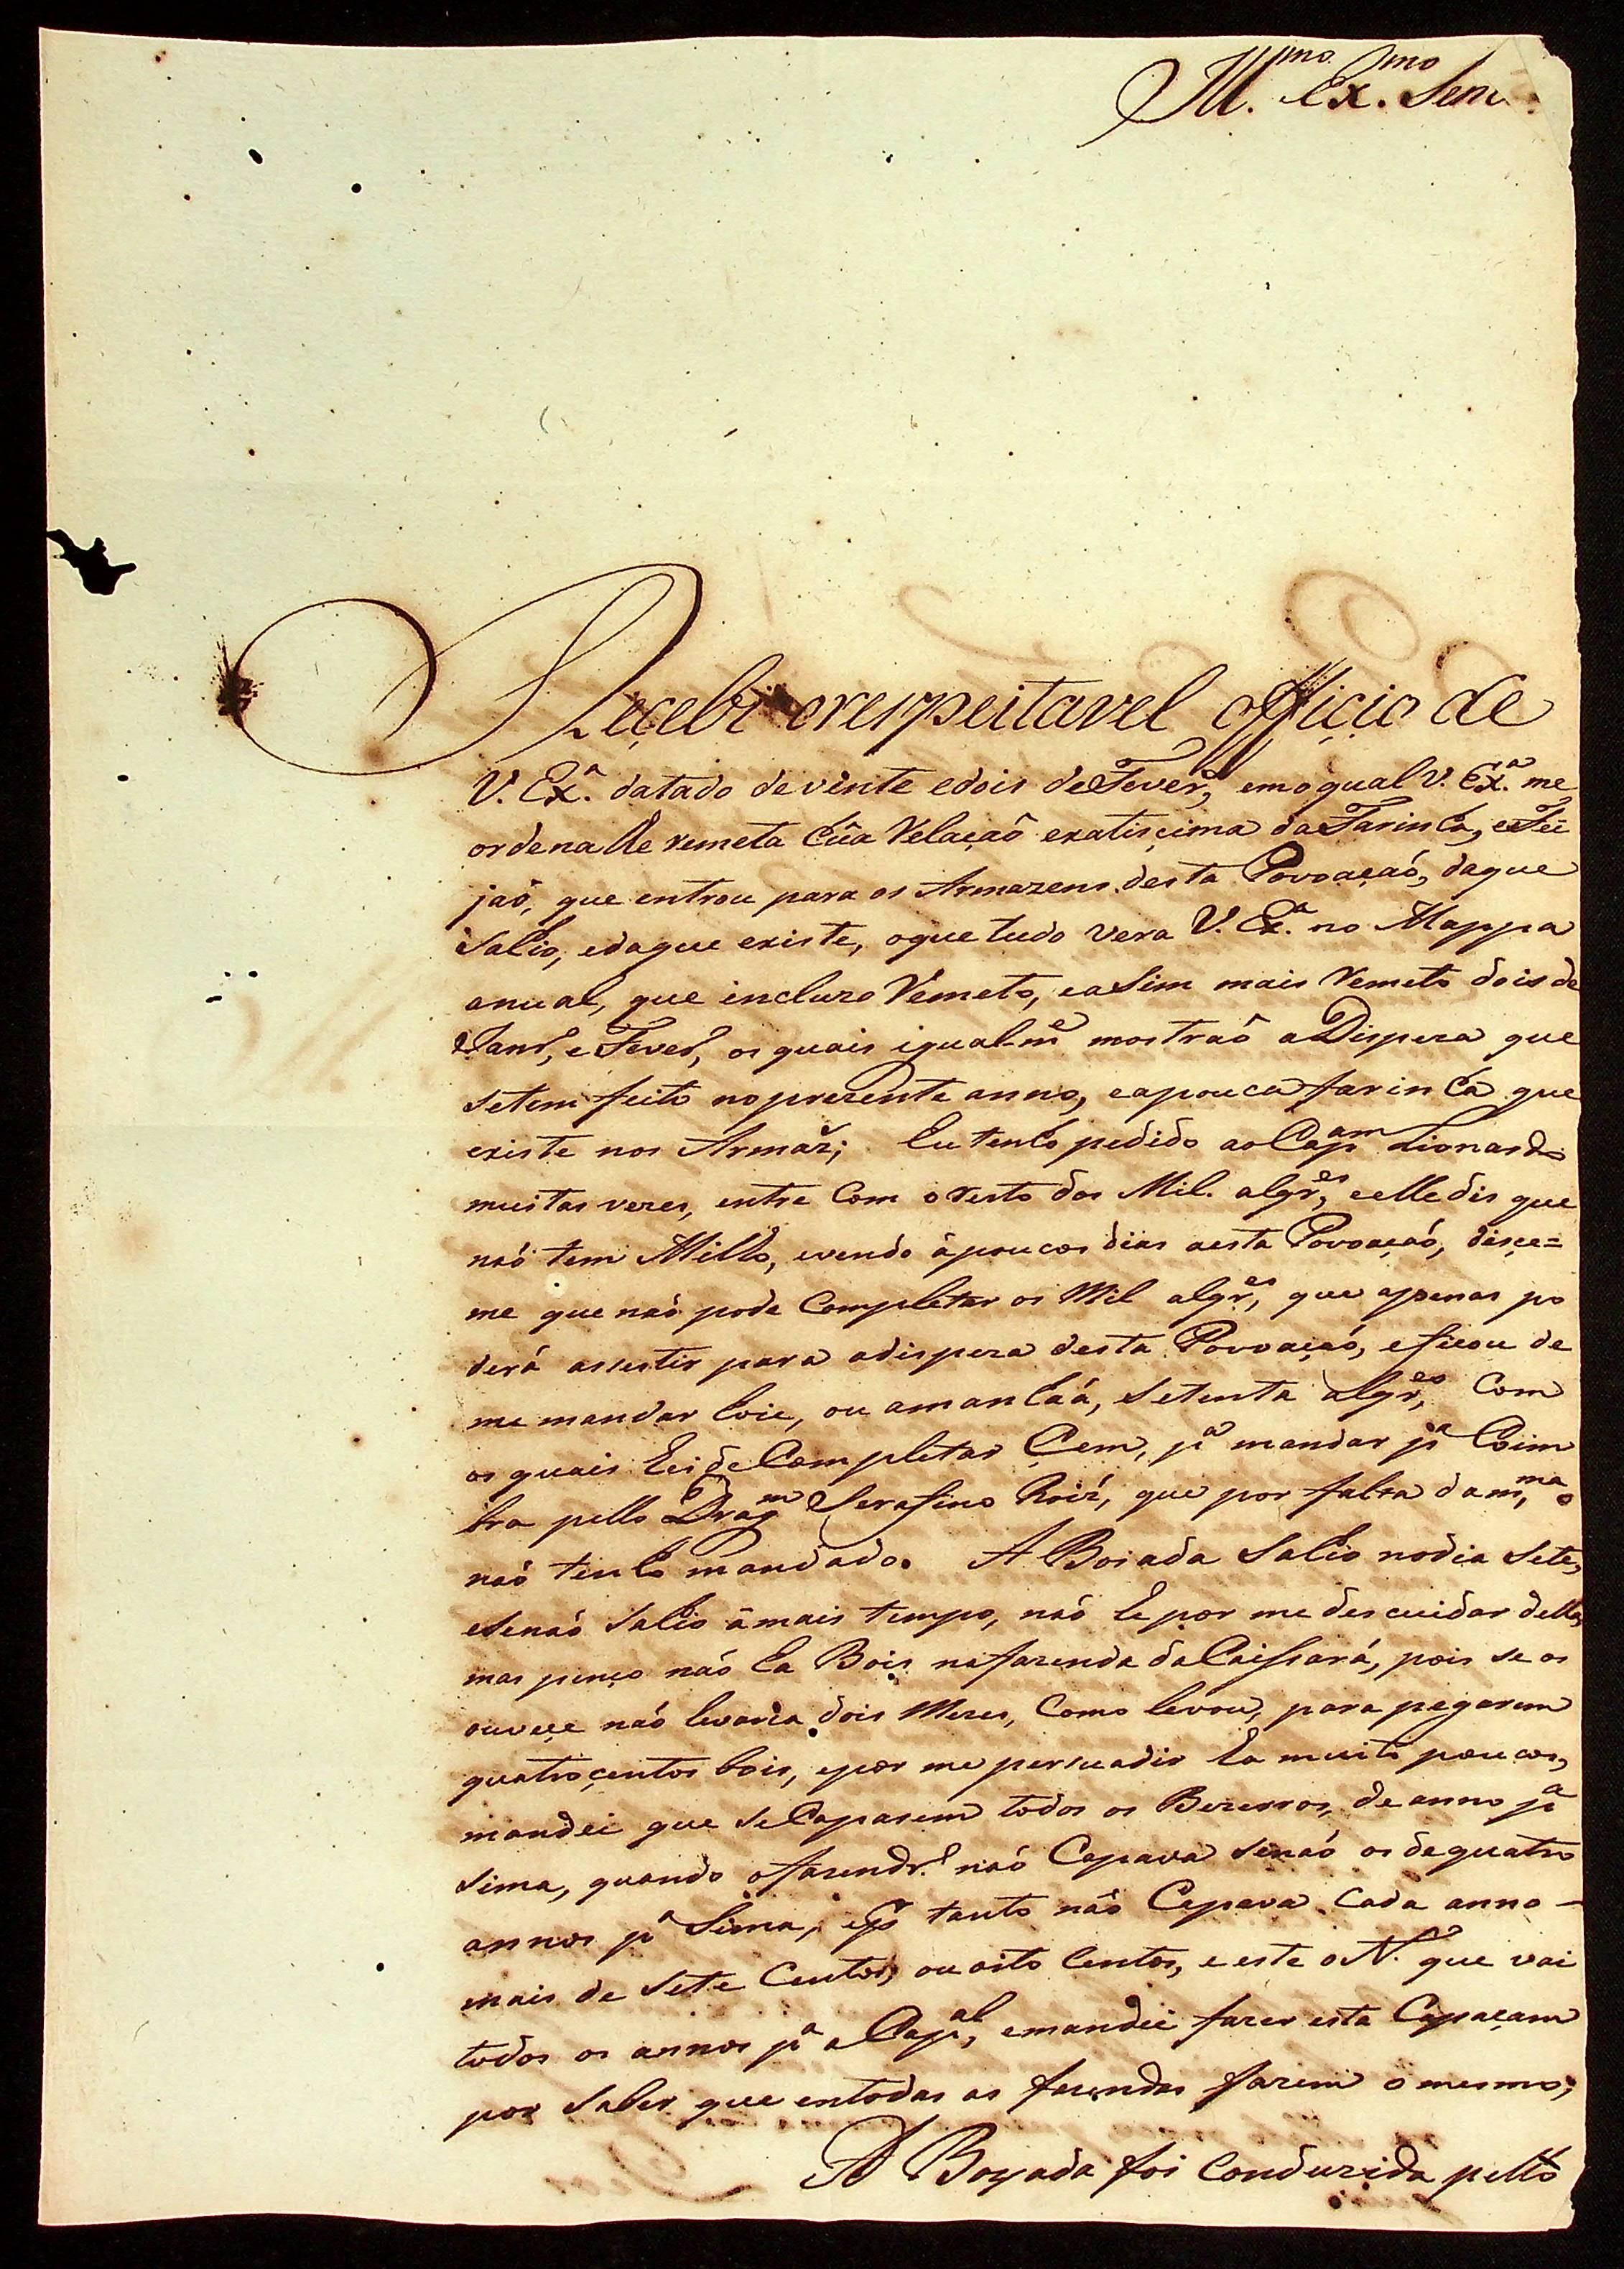 Ill.mo Ex.mo Senr.
Reçebi o respeitavel officio de
V. Ex.a datado de vinte e dois de Fever.o, em o qual V. Ex.a me
ordena lhe remeta hũa Relação exatiçima da Farinha, e Fei
jaõ, que entrou para os Armazens desta Povoaçaõ, da que
Sahio, e da que existe, o que tudo vera V. Ex.a no Mappa
anual, que incluzo Remeto, e asim mais Remeto dois de
Janr.o, e Fever.o, os quais igualm.e mostraõ a Dispeza que
setem feito no prezente anno, e a pouca farinha que
existe nos Armaz.s; Eu tenho pedido ao Cap.am Lionardo
muitas vezes, entre Com o resto dos Mil. alqr.es, e elle dis que
naõ tem Milho, e vendo à poucos dias a esta Povoaçaõ, diçe=
me que naõ pode Completar os Mil alqr.es, que apenas po
derá assestir para a dispeza desta Povoaçaõ, e ficou de
me mandar hoie, ou amanháá, Setenta alqr.es, Com
os quais hei de Completar Çem, p.a mandar p.a Coim
bra pello Drag.m Serafino Roiz, que por falta da m.ma
naõ tenho mandado. A Boiada Sahio no dia Sete,
e Senaõ Sahio à mais tempo, naõ he por me descuidar della,
mas penço naõ ha Bois na fazenda da Caissará, pois se os
ouveçe naõ levaria dois Mezes, Como levou, para pegarem
quatroçentos bois, e por me persuadir ha muito poucos,
mandei que se Capasem todos os Bezerros, de anno p.a
sima, quando o fazendr.o naõ Capava senaõ os de quatro
annos p.a Sima, e p.r tanto naõ Capava Cada anno –
mais de Sete Centos, ou oito Centos, e este o N.o que vai
todos os annos p.a a Cap.al, e mandei fazer esta Capaçam
por Saber que entodas as fazendas fazem o mesmo;
A Boyada foi Conduzida pello